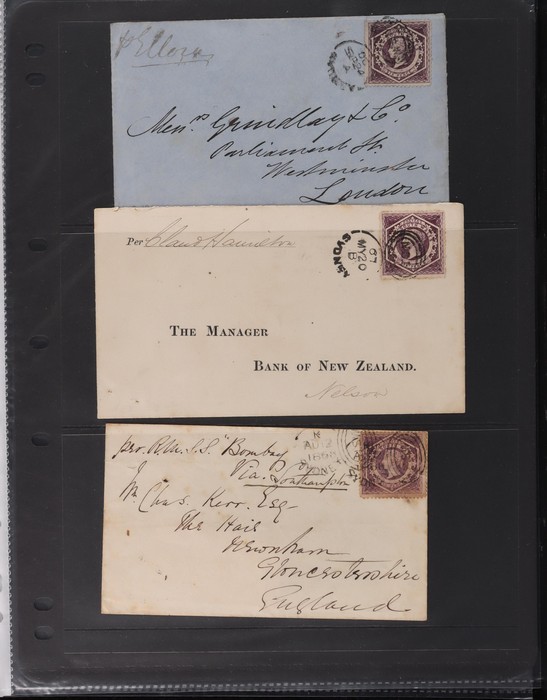 p Ellora
Messrs Grindlay & Co
Parliament St.
Westminster
London
Per Claud Hamilton
67
MY 20
B
THE MANAGER
BANK OF NEW ZEALAND.
Nelson
per R.M.S.S. "Bombay"
Via Southampton
Chas. Kerr. Esq
The Haie
Newnham
Gloucestershire
England
AU 12
1868